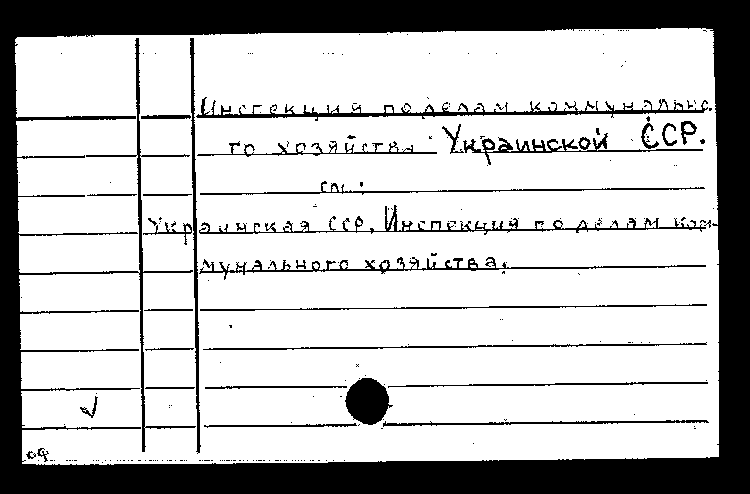 Инспекция по делам коммунально
го хозяйства Украинской ССР.
см.:
Украинская ССР. Инспекция по делам ком-
мунального хозяйства.
оф